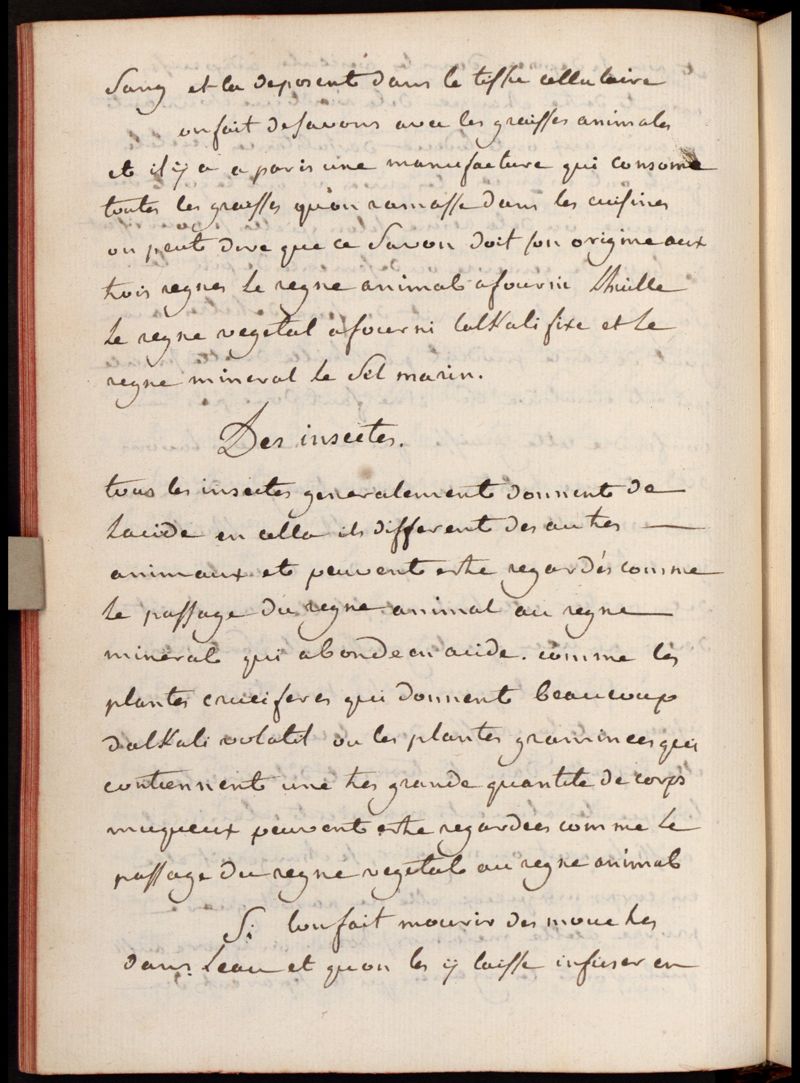 Sang et la deposent dans le tissu cellulaire
on fait de savons avec les graisses animales
et il ÿ a a paris une manufacture qui consome
toutes les graisses qu'on ramasse dans les cuisines
on peut dire que ce savon doit son origine aux
trois regnes le regne animal a fourni lhuille
le regne vegetal a fourni lalkali fixe et le
regne mineral le sel marin.
Des insectes.
tous les insectes generalement donnent de
lacide en cella ils different des autres —
animaux et peuvent estre regardés comme
le passage du regne animal au regne
mineral qui abonde en acide. comme les
plantes cruciferes qui donnent beaucoup
dalkali volatil ou les plantes graminees qui
contiennent une tres grande quantite de corps
muqueux peuvent estre regardees comme le
passage du regne vegetal au regne animal
Si lon fait mourir des mouches
dans leau et quon les ÿ laisse infuser en